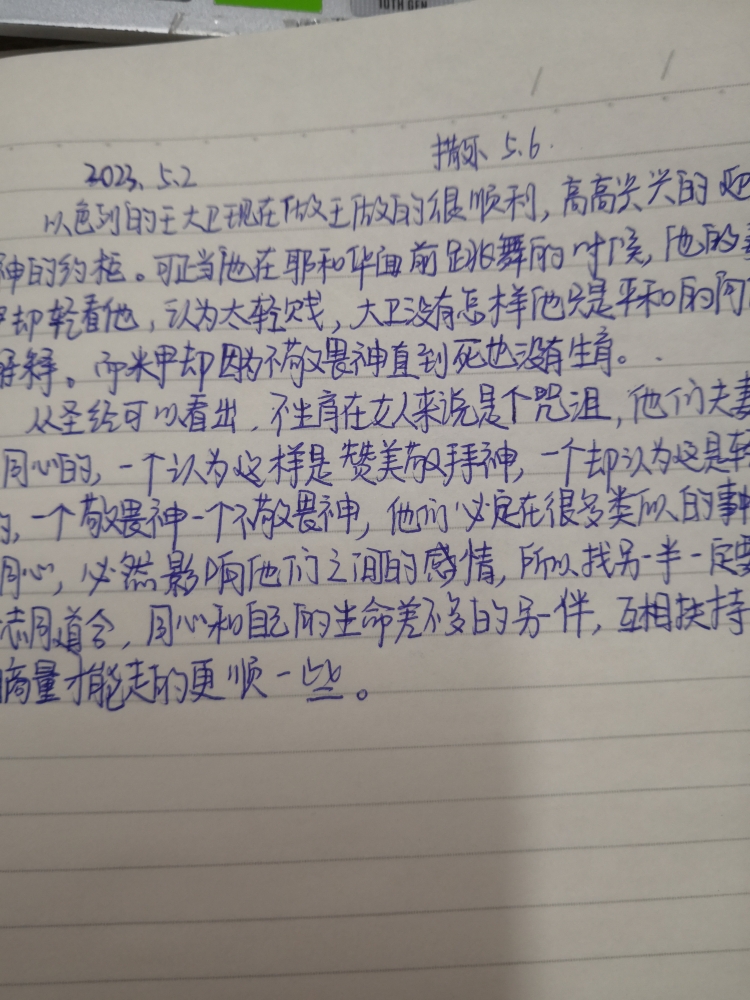 10TH GEN
2023. 5.2 撒下 5.6.
以色列的王大卫现在做王做的很顺利，高高兴兴的迎
神的约柜。可正当他在耶和华面前跳舞的时候，他的妻
甲却轻看他，认为太轻贱，大卫没有怎样他只是平和的向
解释。而米甲却因为不敬畏神直到死也没有生育。
从圣经可以看出，不生育在女人来说是个咒诅，他们夫妻
同心的，一个认为这样是赞美敬拜神，一个却认为这是轻
的，一个敬畏神一个不敬畏神，他们必定在很多类似的事情
同心，必然影响他们之间的感情，所以找另一半一定要
志同道合，同心和自己的生命差不多的另一伴，互相扶持
商量才能走的更顺一些。